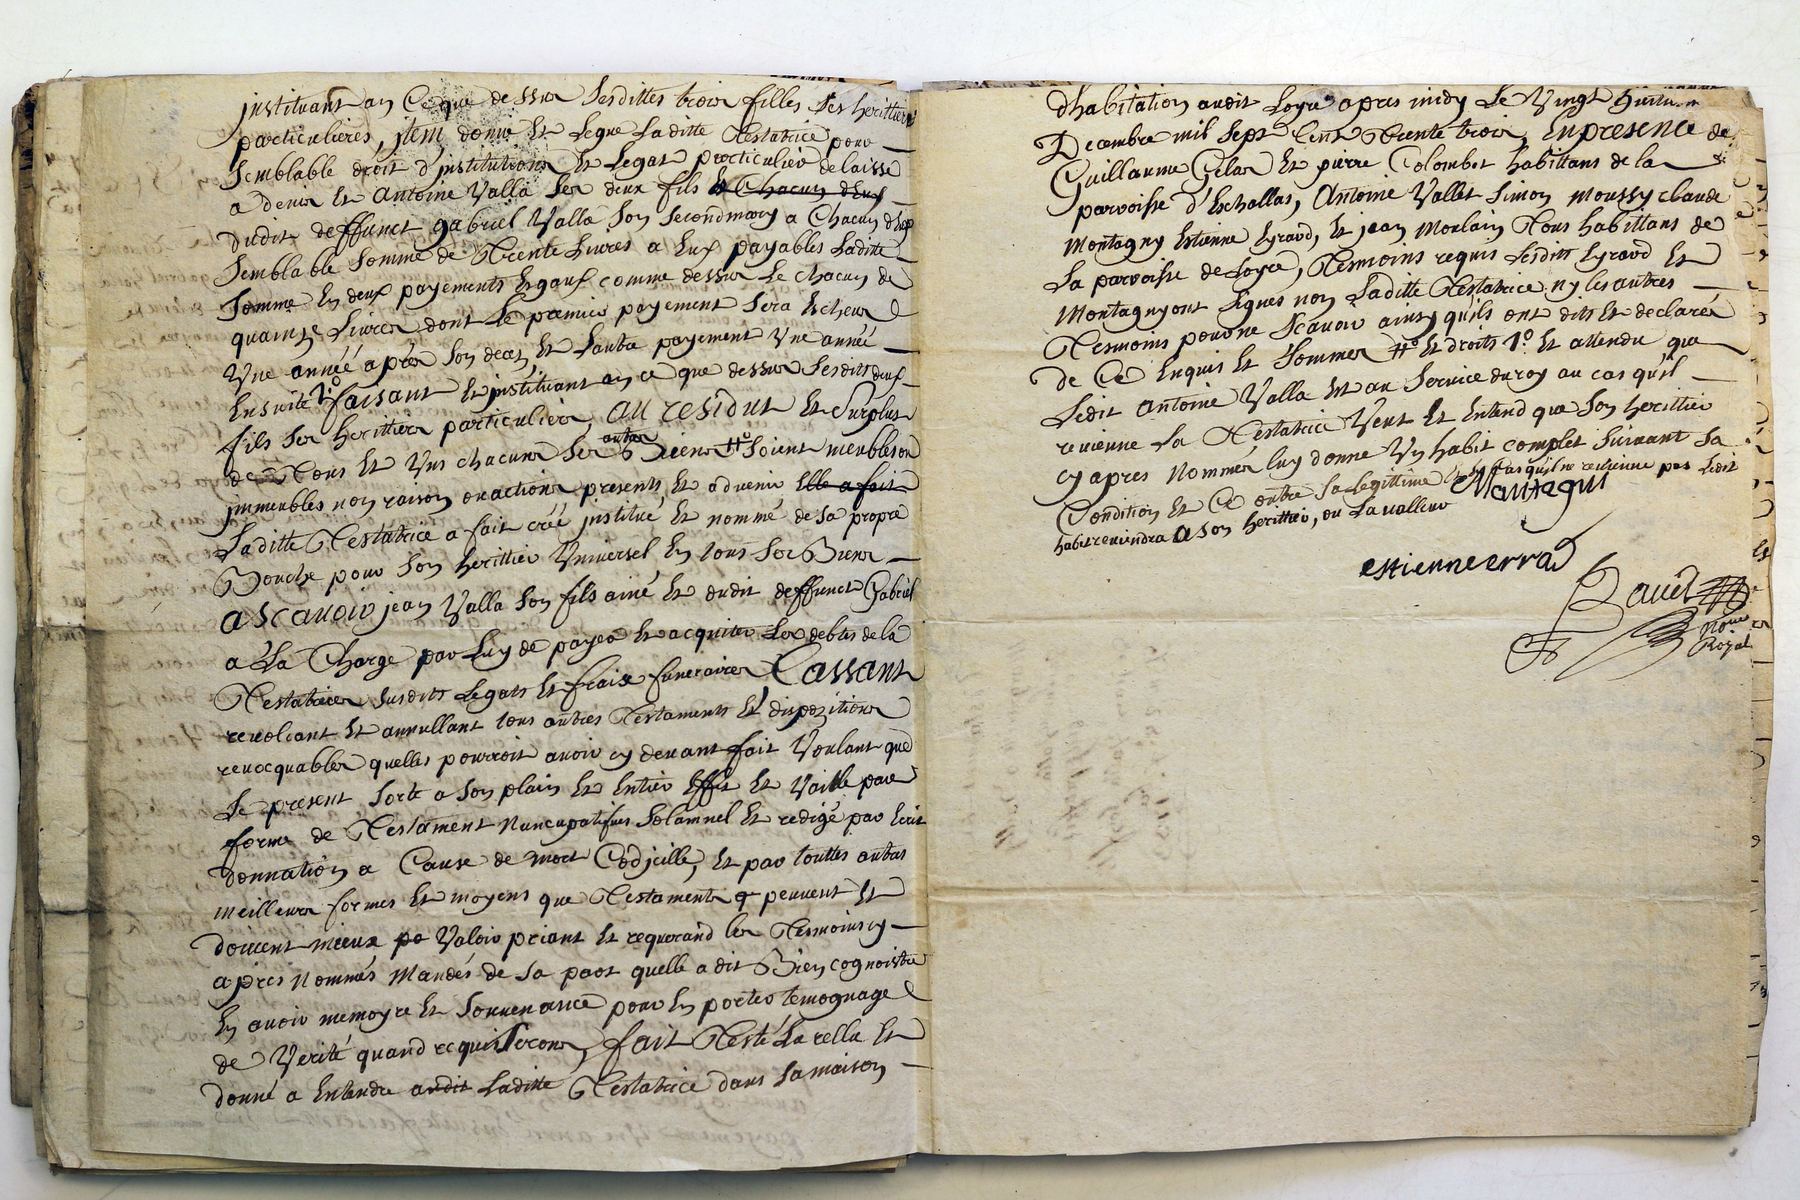 instituant en ce que dessus sesdittes trois filles ses herittieres
particulieres, item donne et legue laditte testatrice pour
semblable droit d'institution et legat particulier delaisse
a denis et antoine valla ses deux fils et chacun d'eux
dudit deffunct gabriel valla son second mary a chacun d'eux
semblable somme de trente livres a eux payables laditte
somme en deux payements esgaux comme dessus le chacun de
quainze livres dont le premier payement sera escheu
une année apres son decez, et l'autre payement une année
ensuite 1º faisant et instituant en ce que dessus sesdits deux
fils ses herittiers particuliers, au residut et surplus
de tous et uns chacuns ses autres biens #º soient meubles ou
immeubles noms raisons ou actions presents et advenir elle a fait
laditte testatrice a fait créé institué et nommé de sa propre
bouche pour son herittier universel en tous ses biens
ascavoir jean valla son fils ainé et dudit deffunct gabriel
a la charge par luy de payer et acquiter les debtes de la
testatrice susdits legats et frais funeraires cassant
revolcant et annullant tous autres testaments et dispozitions
revocquables quelles pourroit avoir cy devant fait voulant que
le present sorte a son plain et entier effet et vaille par
forme de testament nuncupatif solamnel et redigé par ecrit
donnation a cause de mort codjcille, et par touttes autres
meilleurs formes et moyens que testaments peuvent et
doivent mieux valoir priant et requerand les tesmoins cy
apres nommés mandés de sa part quelle a dit bien cognoistre
en avoir memoyre et souvenance pour en porter temognage
de verité quand requis seront, fait testé la relu et
donné a entendre audit laditte testatrice dans sa maison
d'habitation audit loyre apres midy le vingt huit
decembre mil sept cent trente trois, en presence de
guillaume gelas et pierre colombet habittans de la
parroisse d'eschallas, antoine vallet simon moussy claude
montagny estienne eyraud, et jean moulain tous habittans de
la parroisse de loyre, tesmoins requis lesdits eyraud et
montagny ont signés non laditte testatrice ny les autres
tesmoins pour ne scavoir ainsy qu'ils ont dit et declarés
de ce enquis et sommés #º et droits 1º et attendu que
ledit antoine valla est au service du roy au cas qu'il
revienne la testatrice veut et entend que son herittier
cy apres nommés luy donne un habit complet suivant sa
condition et ce outre sa legittime et au cas qu'il ne revienne pas ledit
habit reviendra a son herittier, ou la valleur
Mantagni
estienne erraud
No.re
Royal